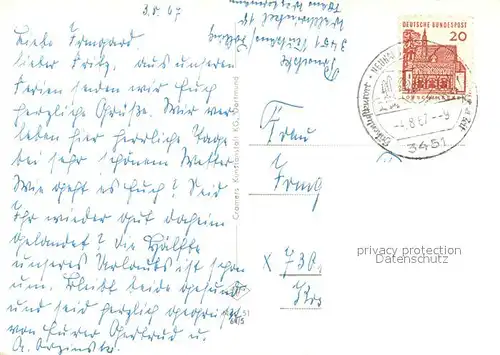 3.8.67
Liebe Irmgard
lieber Fritz, aus unseren
Ferien senden wir Euch
herzliche Grüße. Wir ver-
leben hier herrliche Tage
bei sehr schönem Wetter
Wie geht es Euch? Seid
Ihr wieder gut daheim
gelandet? Die Hälfte
unseres Urlaubs ist schon
um. Bleibt beide gesund
und seid herzlich gegrüßt
von Eurer Gertrud u.
Cramers Kunstanstalt KG, Dortmund
3451
DEUTSCHE BUNDESPOST
20
-4.8.67.-9
3451
Frau
Irmg
x 730
privacy protection
Datenschutz